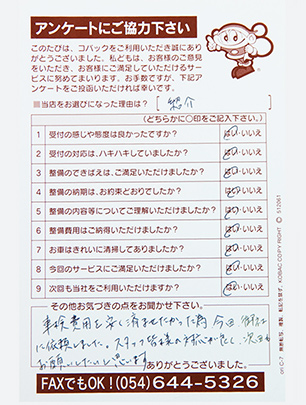 アンケートにご協力下さい
このたびは、コバックをご利用いただき誠にあり
がとうございました。私どもは、お客様のご意見
をいただき、お客様にご満足していただけるサー
ビスに努めてまいります。お手数ですが、下記アン
ケートをご投函いただければ幸いです。
■当店をお選びになった理由は? [ 紹介 ]
(どちらかに○印をご記入下さい。)
1 受付の感じや態度は良かったですか? はい・いいえ
2 受付の対応は、ハキハキしていましたか? はい・いいえ
3 整備のできばえは、ご満足いただけましたか? はい・いいえ
4 整備の納期は、お約束どおりでしたか? はい・いいえ
5 整備の内容等についてご理解いただけましたか? はい・いいえ
6 整備費用はご納得いただけましたか? はい・いいえ
7 お車はきれいに清掃してありましたか? はい・いいえ
8 今回のサービスにご満足いただけましたか? はい・いいえ
9 次回も当社をご利用いただけますか? はい・いいえ
その他お気づきの点をお聞かせ下さい。
車検費用を安く済ませたかった為 今回 御社
に依頼しました。スタッフ皆様の対応が良く、次回も
お願いしたいと思います
ありがとうございました。
FAXでもOK! (054)644-5326
KOBAC COPY RIGHT © 512061
無断転写、複製、転記を禁ず。